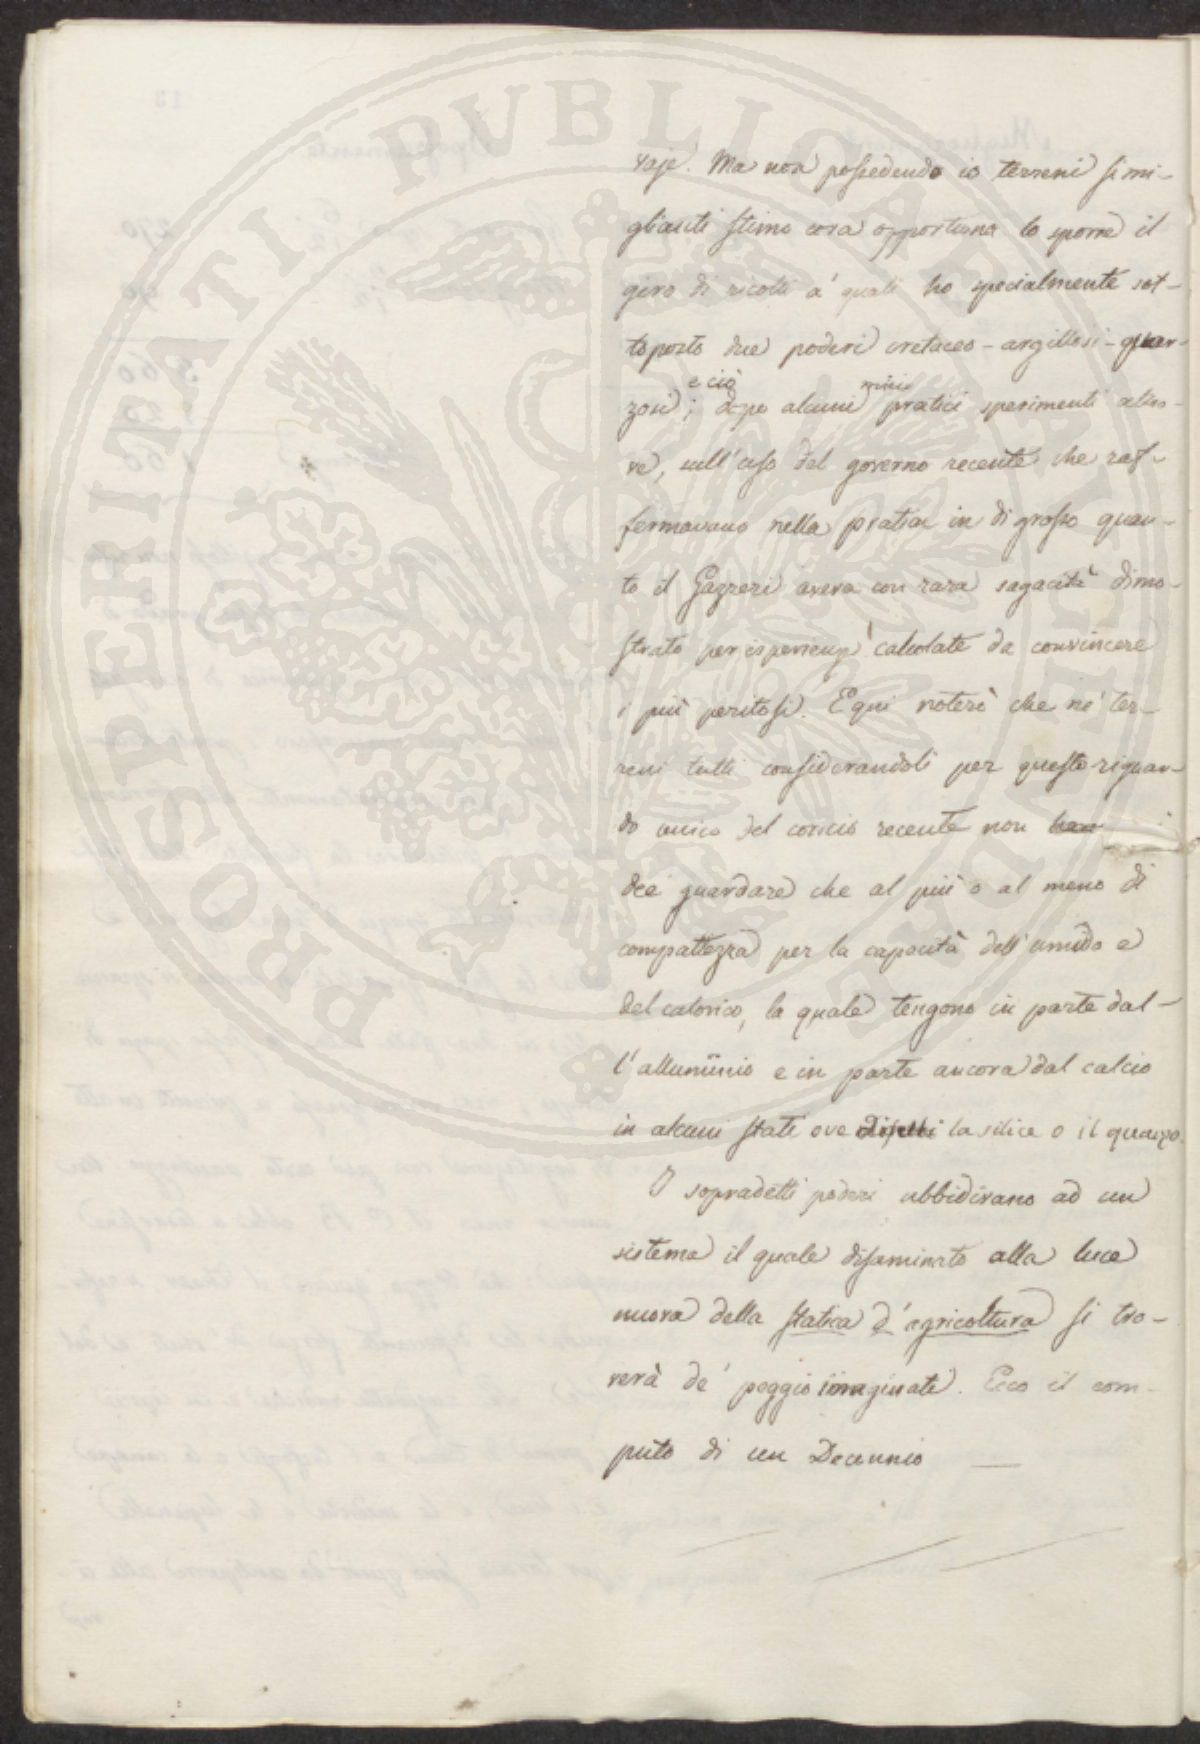 raje. Ma non possedendo io terreni simi-
glianti stimo cosa opportuna lo sporre il
giro di ricolti a' quali ho specialmente sot-
toposto due poderi cretaceo-argillosi-quar-
e ciò miei
zosi; dopo alcuni pratici sperimenti altro-
ve, sull'uso del governo recente che raf-
fermavano nella pratica in di grosso quan-
to il Gazzeri aveva con rara sagacità dimo-
strato per isperienze calcolate da convincere
i più peritosi. E qui noterò che ne' ter-
reni tutti considerandoli per questo riguar-
do unico del concio recente non
dee guardare che al più o al meno di
compattezza per la capacità dell'umido e
del calorico, la quale tengono in parte dal-
l'alluminio e in parte ancora dal calcio
in alcuni stati ove difetti la silice o il quarzo.
I sopradetti poderi ubbidivano ad un
sistema il quale disaminato alla luce
nuova della statica d'agricoltura si tro-
verà de' peggio immaginati. Ecco il com-
puto di un Decennio
PROSPERITATI PUBLICAE AUGENDAE